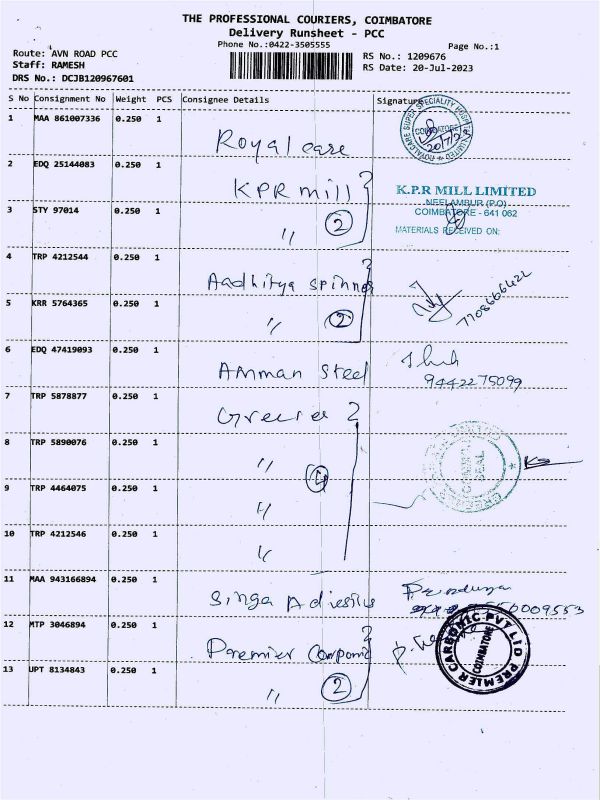 THE PROFESSIONAL COURIERS, COIMBATORE
Delivery Runsheet - PCC
Phone No.:0422-3505555
Page No.:1
Route: AVN ROAD PCC
Staff: RAMESH
DRS No.: DCJB120967601
RS No.: 1209676
RS Date: 20-Jul-2023
S No Consignment No Weight PCS Consignee Details Signature
1 MAA 861007336 0.250 1 Royal care
ROYALCARE SUPER SPECIALITY HOSPITAL LIMITED COIMBATORE 20/7/23
2 EDQ 25144083 0.250 1 KPR mill
K.P.R MILL LIMITED
NEELAMBUR (P.O)
COIMBATORE - 641 062
MATERIALS RECEIVED ON:
3 STY 97014 0.250 1 " 2
4 TRP 4212544 0.250 1 Aadhitya spinners
7708666422
5 KRR 5764365 0.250 1 " 2
6 EDQ 47419093 0.250 1 Amman Steel
9442275099
7 TRP 5878877 0.250 1
8 TRP 5890076 0.250 1 " 4
SEAL
9 TRP 4464075 0.250 1 "
10 TRP 4212546 0.250 1 "
11 MAA 943166894 0.250 1 Singa
12 MTP 3046894 0.250 1 Premier
PREMIER CARBONIC PVT LTD COIMBATORE
13 UPT 8134843 0.250 1 " 2